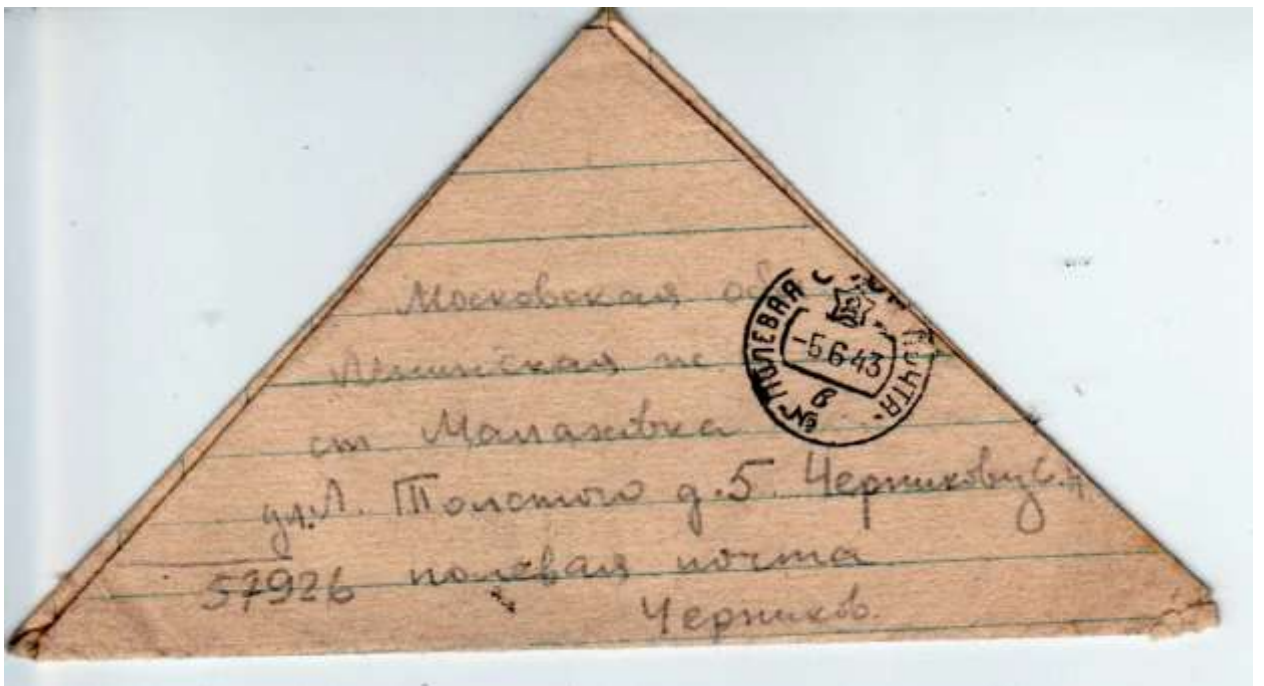 Московская
Ленинская ж.
ст Малаховка
ул. Л. Толстого д. 5. Черникову С. А
57926 полевая почта
Черников.
ПОЛЕВАЯ ПОЧТА
-5 6 43
в